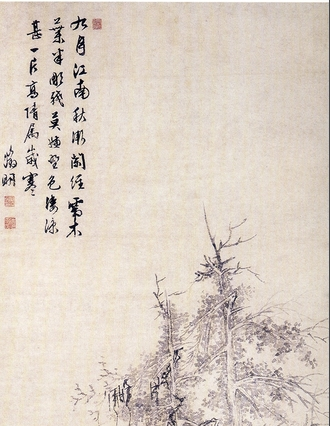 九月江南秋漸闌經霜木
葉半彫殘莫嫌野色凄涼
甚一片高情屬歲寒
徵明